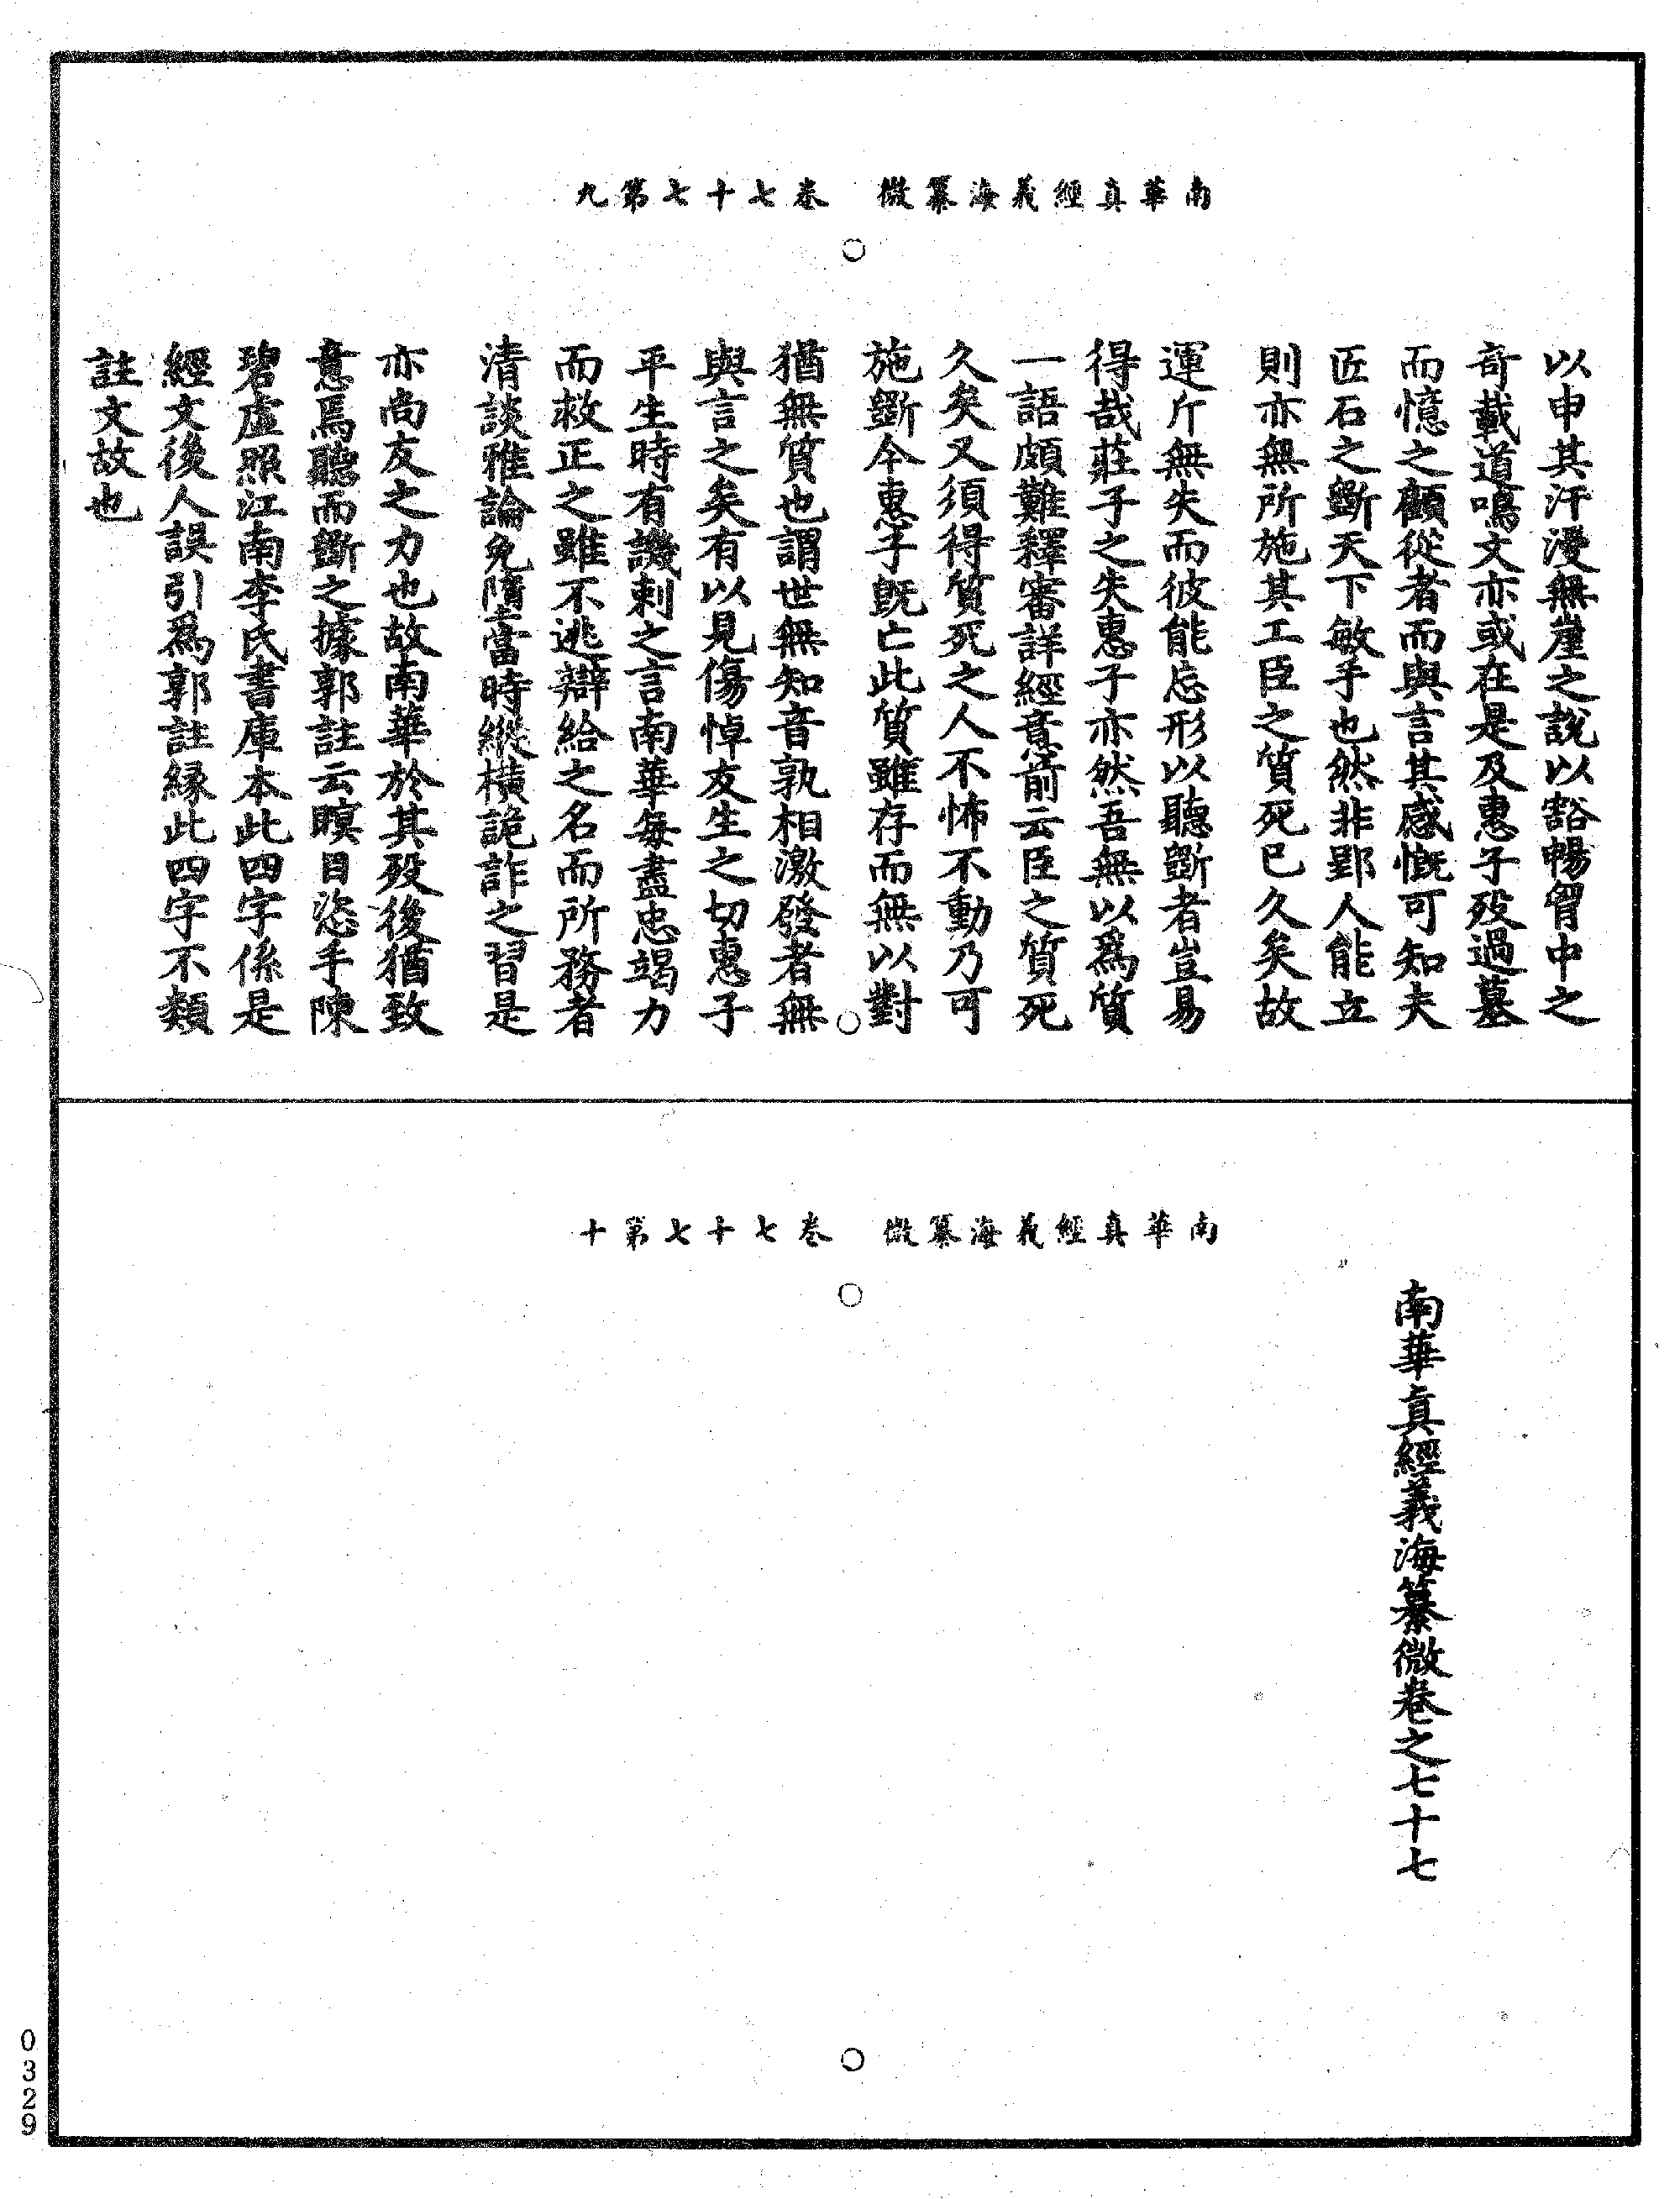 南華真經義海纂微　卷七十七第九
以申其汗漫無崖之說以豁暢胷中之
奇載道鳴文亦或在是及惠子殁過墓
而憶之顧從者而與言其感慨可知夫
匠石之斵天下敏手也然非郢人能立
則亦無所施其工臣之質死已久矣故
運斤無失而彼能忘形以聽斵者豈易
得哉莊子之失惠子亦然吾無以爲質
一語頗難釋審詳經意前云臣之質死
久矣又須得質死之人不怖不動乃可
施斵今惠子旣亡此質雖存而無以對
猶無質也謂世無知音孰相激發者無
與言之矣有以見傷悼友生之切惠子
平生時有譏刺之言南華每盡忠竭力
而救正之雖不逃辯給之名而所務者
清談雅論免隋當時縱橫詭詐之習是
亦尚友之力也故南華於其殁後猶致
意焉聽而斵之據郭註云瞑目恣手陳
碧虛照江南李氏書庫本此四字係是
經文後人誤引爲郭註緣此四字不類
註文故也
南華真經義海纂微　卷七十七第十
南華真經義海纂微卷之七十七
0329